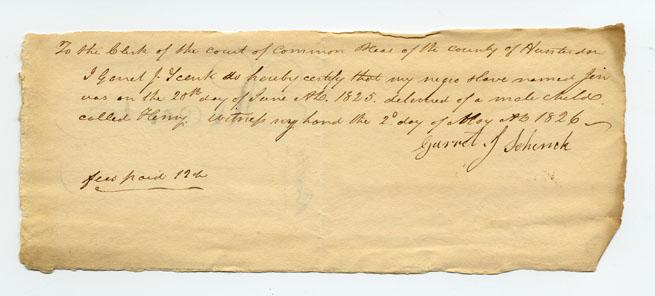 To the Clerk of the court of Common Pleas of the county of Hunterdon
I Garret J. Scenk do hereby certify that my negro slave named Jin
was on the 20th day of June AD. 1825. delivered of a male child
called Henry. Witness my hand the 2d day of May AD 1826
Garret J Schenck
fees paid 12